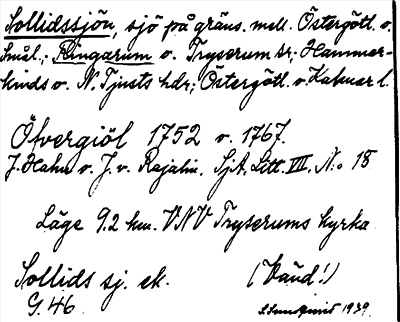 Sollidssjön, sjö på gräns. mell. Östergötl. o.
Smål.; Ringarum o. Tryserum sr; Hammar-
kinds o. N. Tjusts hdr; Östergötl. o. Kalmar l.
Öfvergiöl 1752 o. 1767.
J. Hahn o. J. v. Rajalin. SjA, Litt. VII, N:o 18
Läge 9.2 km. VNV Tryserums kyrka
Sollids sj. ek. (Vänd!)
G. 46 S. Sundquist 1939.